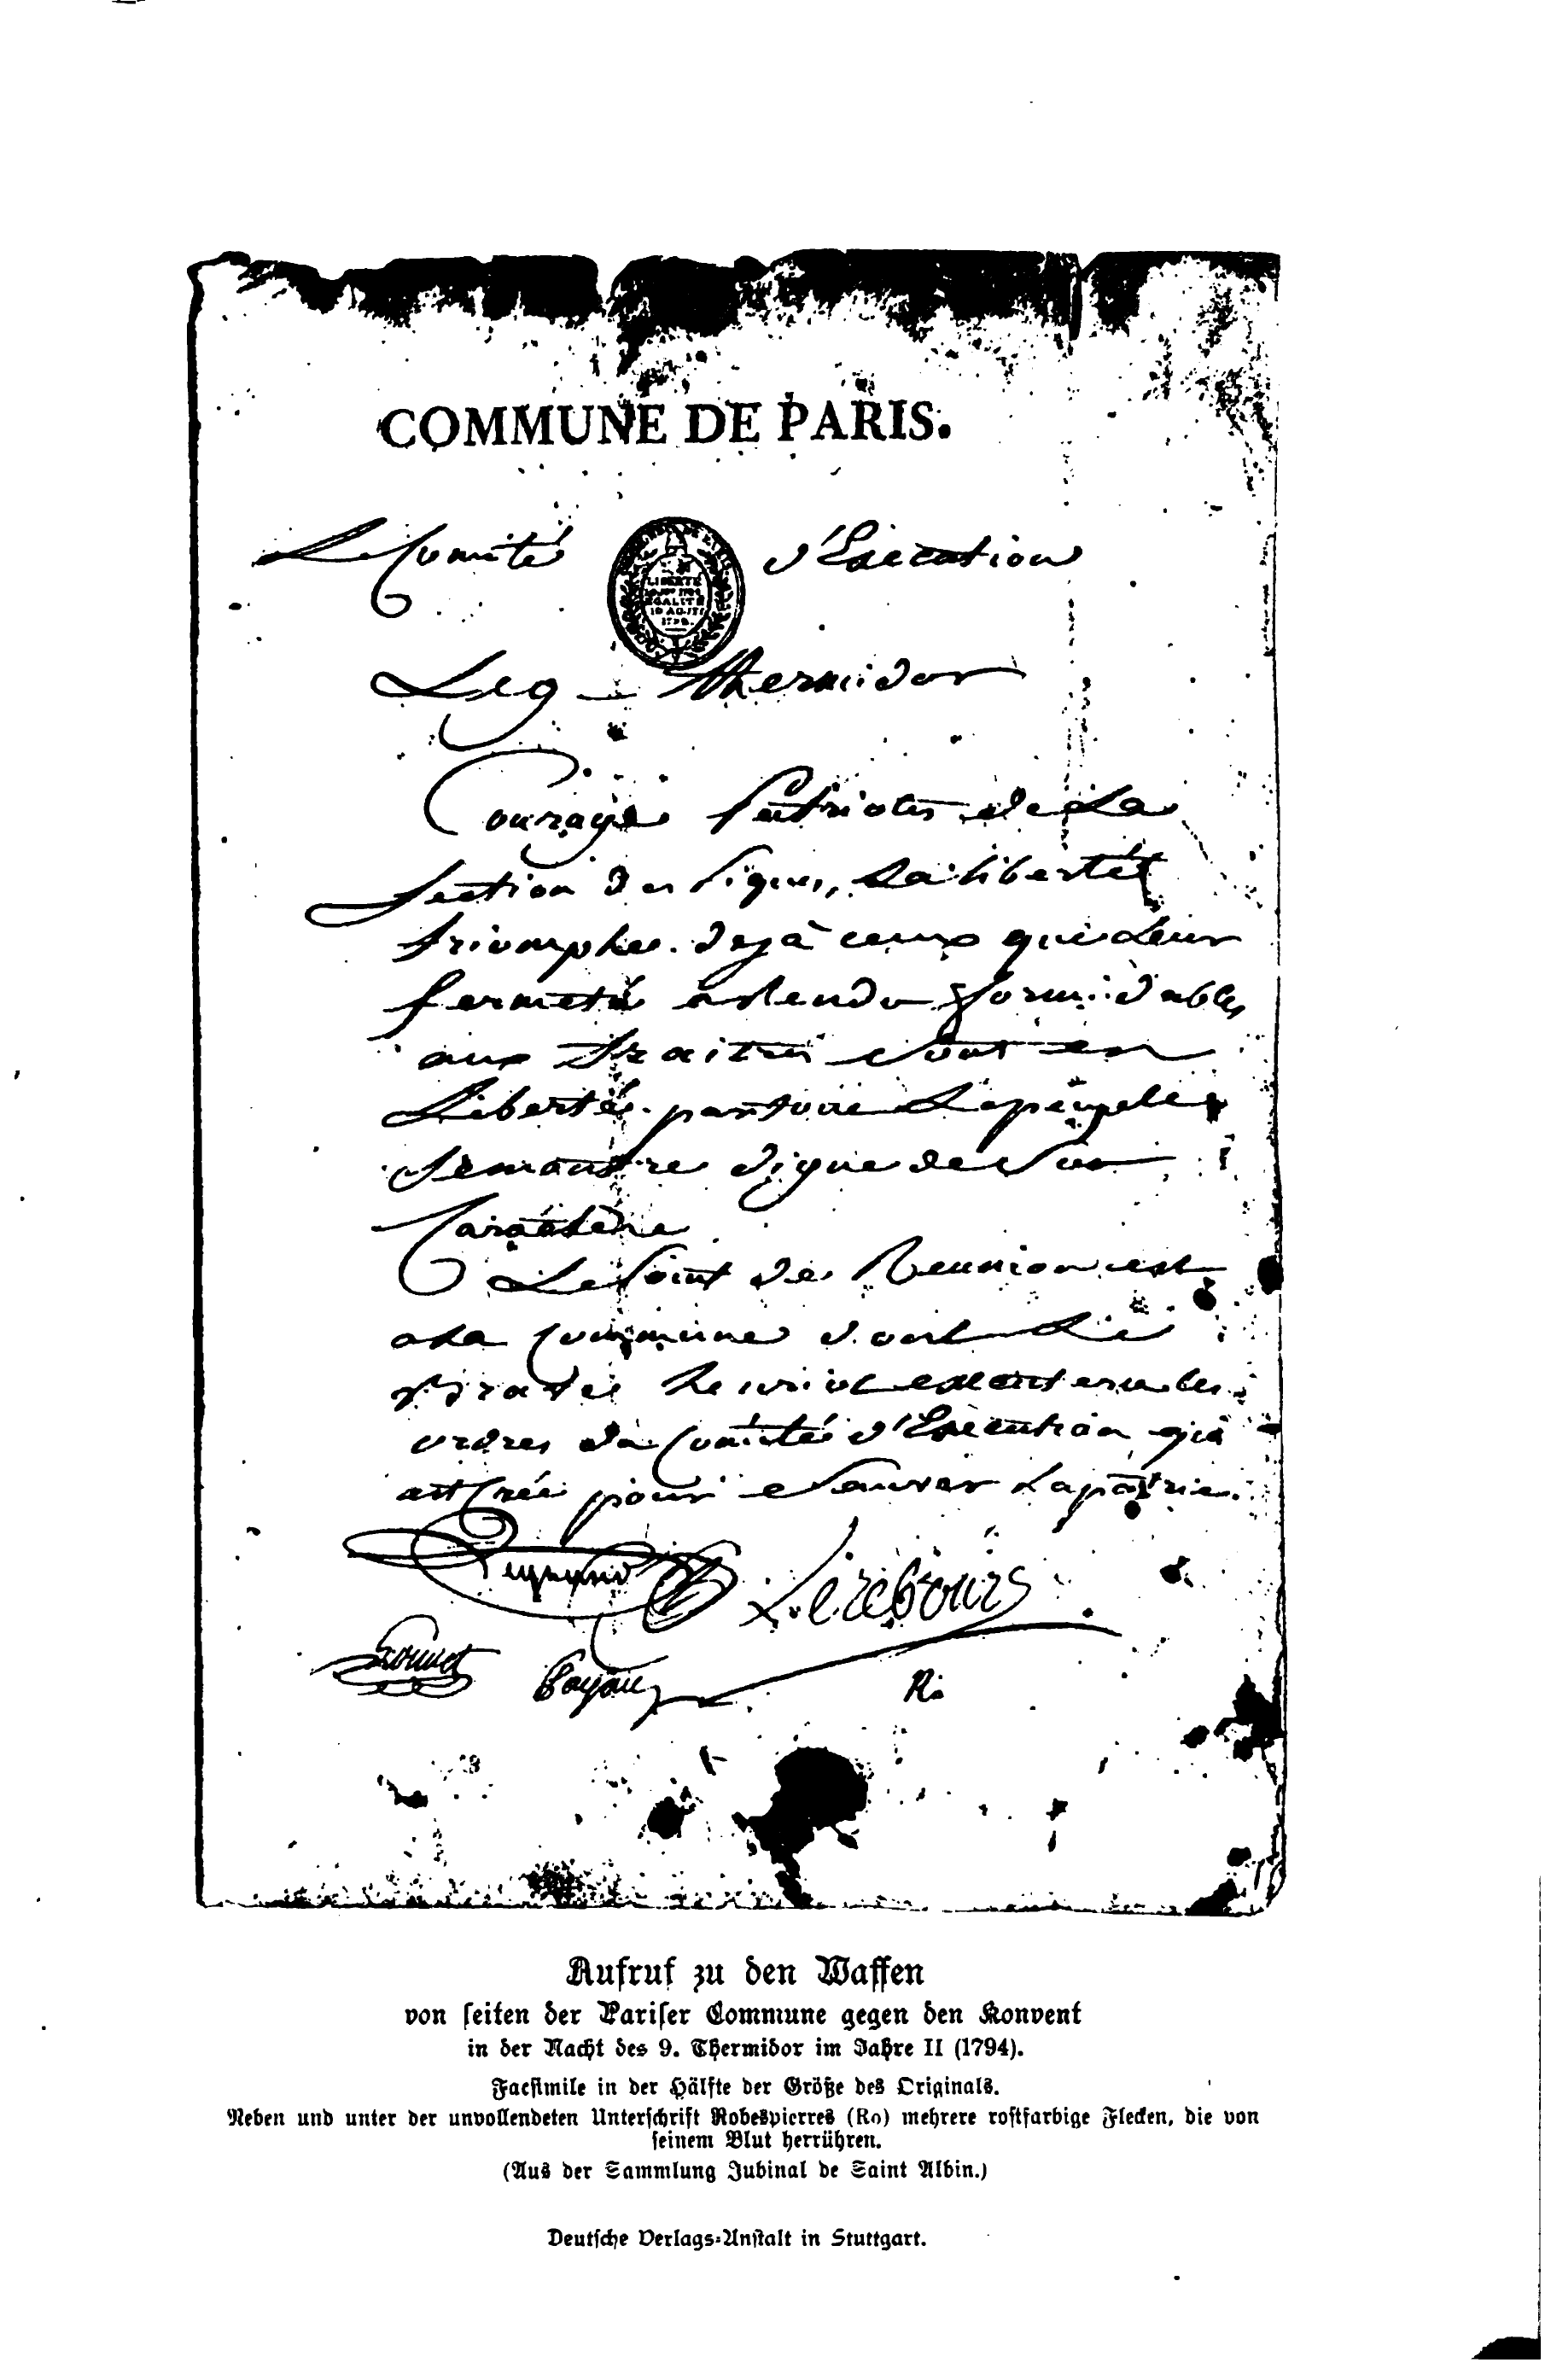 COMMUNE DE PARIS.
Le Comité d'Execution
LIBERTÉ
EGALITÉ
10 AOUT
1792.
Le 9 thermidor
Courage Patriotes de la
section des piques, la liberté
triomphe. deja ceux que leur
fermeté a rendu formidables
aux traitres sont en
liberté. partout le peuple
se montre digne de son
Caractère
Le point de Reunion est
a la Commune dont le
brave henriot executera les
ordres du Comité d'Execution qui
est créé pour sauver la patrie.
Legrand Lerebours
Louvet Payan Ro
Aufruf zu den Waffen
von seiten der Pariser Commune gegen den Konvent
in der Nacht des 9. Thermidor im Jahre II (1794).
Facsimile in der Hälfte der Größe des Originals.
Neben und unter der unvollendeten Unterschrift Robespierres (Ro) mehrere rostfarbige Flecken, die von
seinem Blut herrühren.
(Aus der Sammlung Jubinal de Saint Albin.)
Deutsche Verlags-Anstalt in Stuttgart.